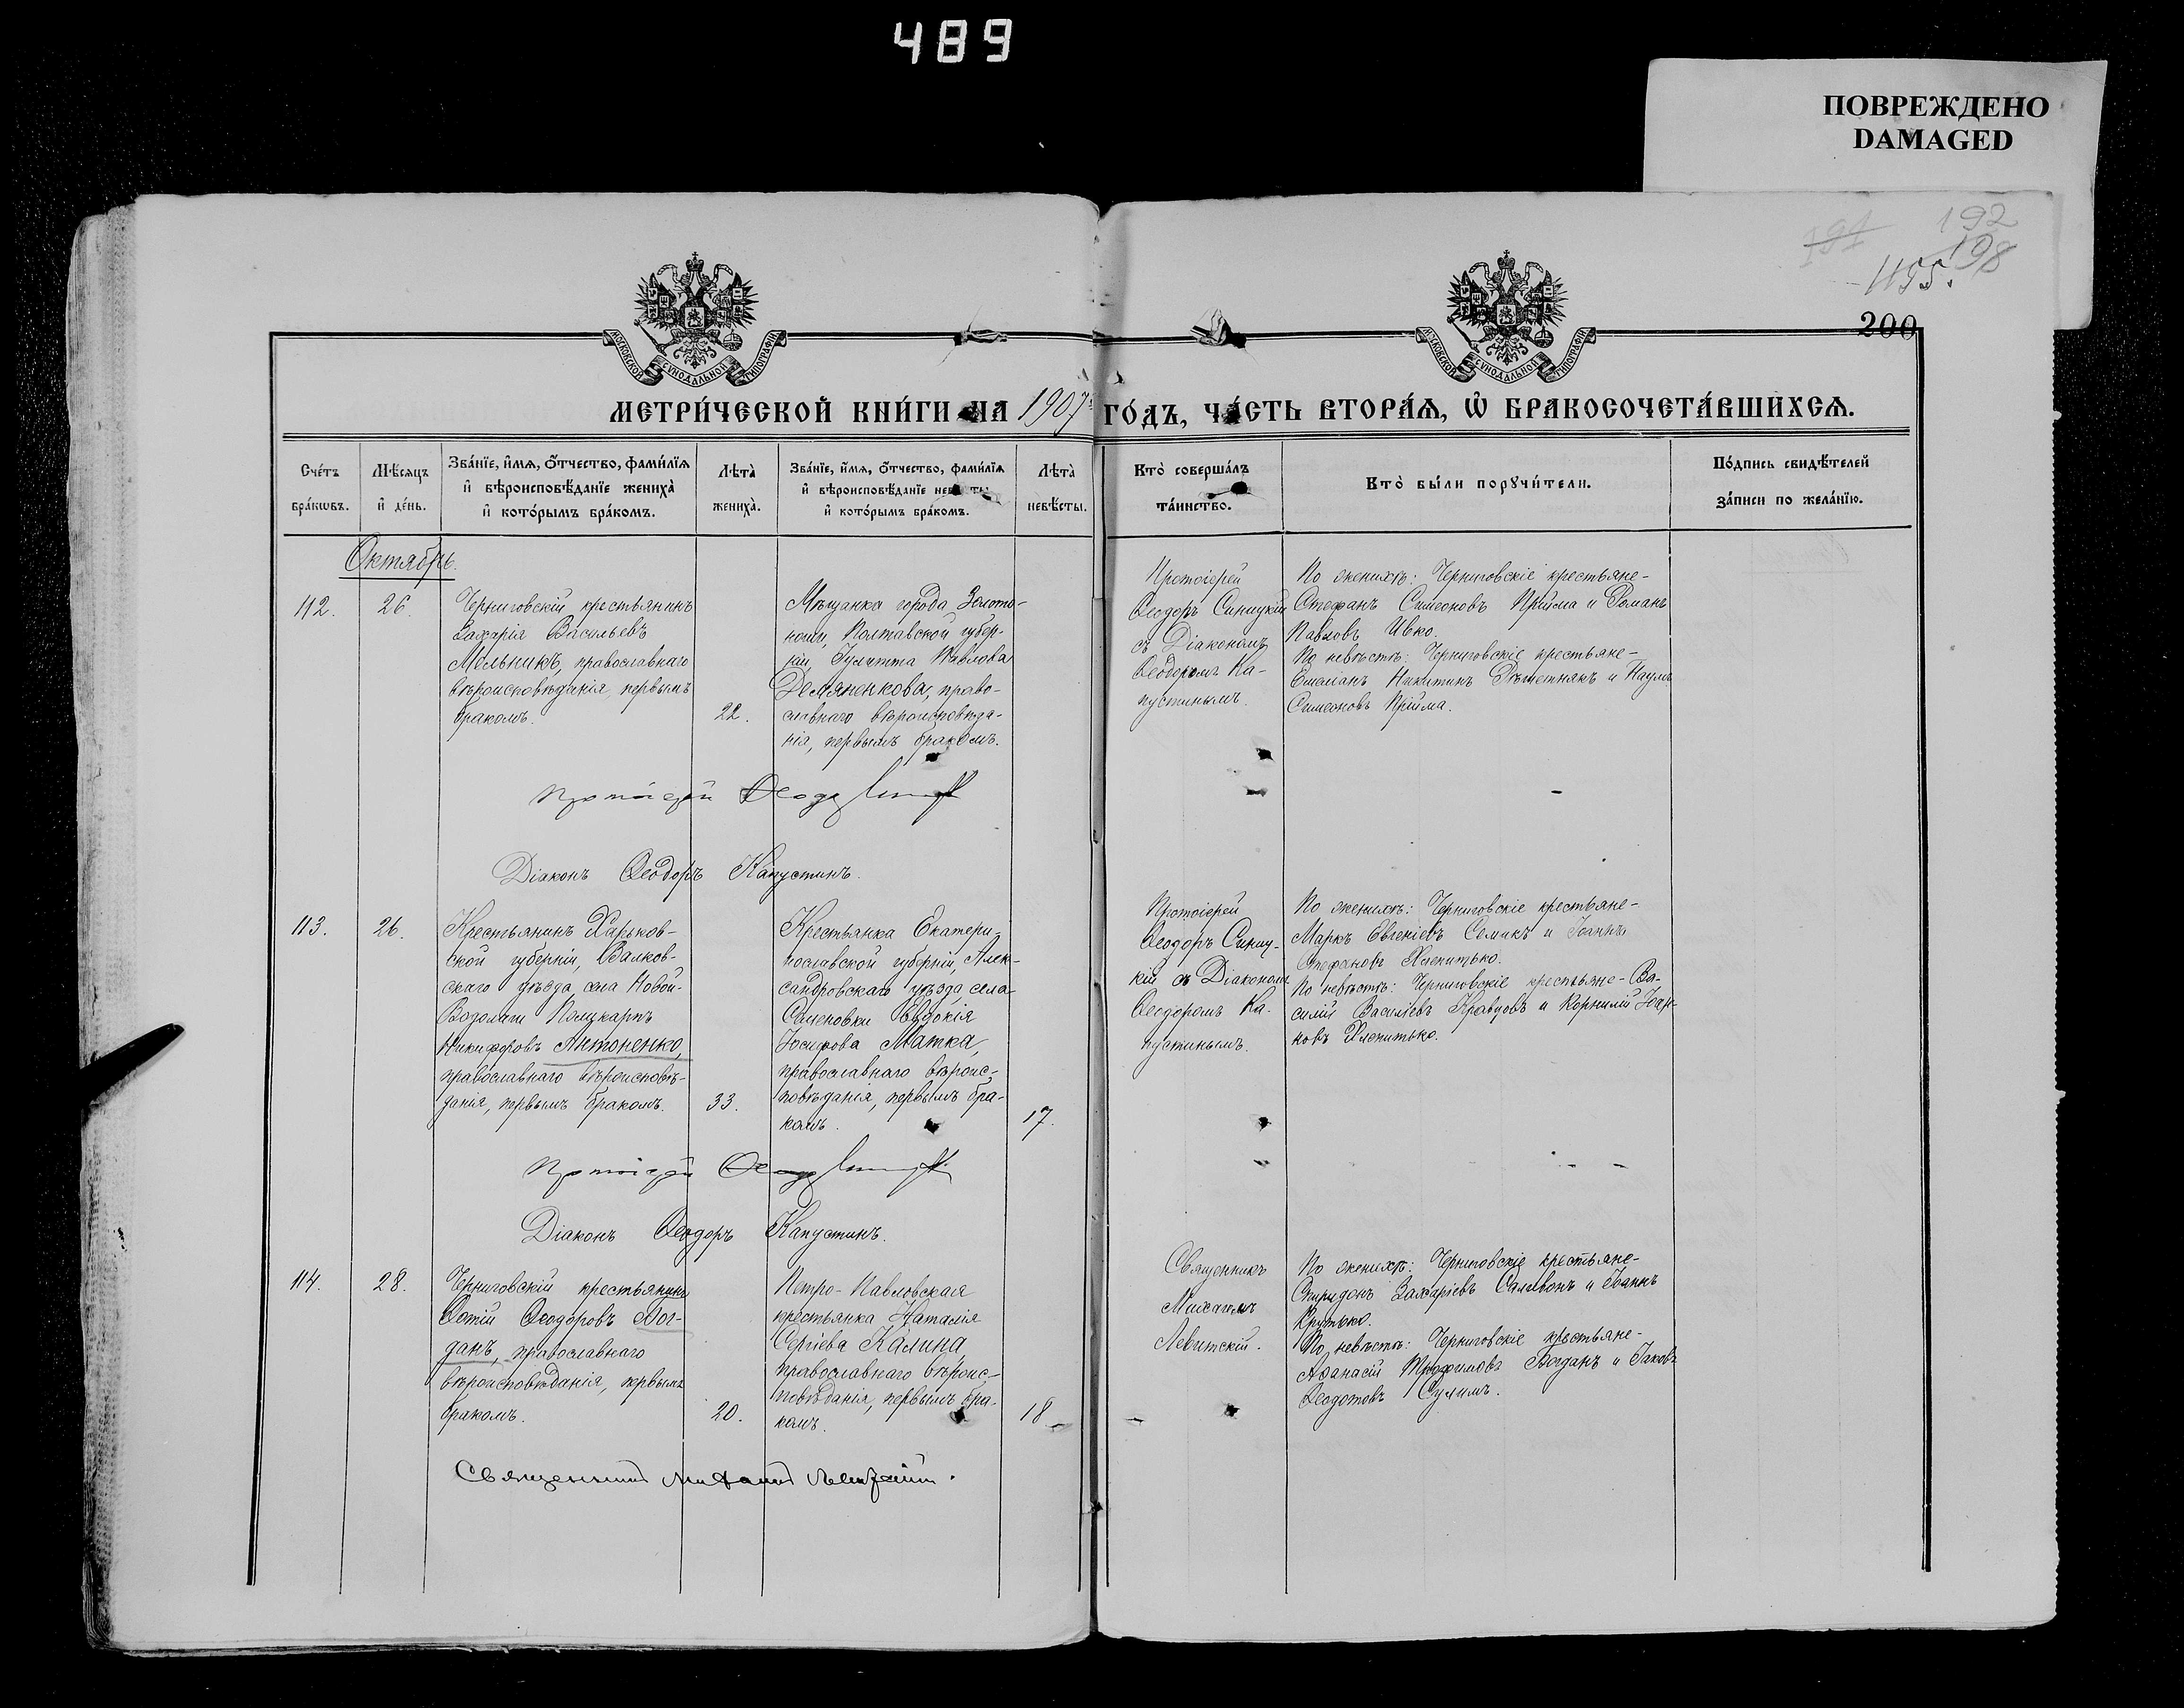 489
ПОВРЕЖДЕНО
DAMAGED
191 192
198
1195.
200
МОСКОВСКОЙ СѴНОДАЛЬНОЙ ТИПОГРАФІИ
МОСКОВСКОЙ СѴНОДАЛЬНОЙ ТИПОГРАФІИ
МЕТРИ́ЧЕСКОЙ КНИ́ГИ НА 1907 ГО́ДЪ, ЧА́СТЬ ВТОРА́Ѧ, Ѡ БРАКОСОЧЕТА́ВШИХСѦ.
Сче́тъ
бра́кѡвъ.
Мѣ́сѧцъ
и де́нь.
Зва́нїе, и́мѧ, ѻ́тчество, фами́лїѧ
и вѣроисповѣ́данїе жениха̀
и кото́рымъ бра́комъ.
Лѣта̀
жениха̀.
Зва́нїе, и́мѧ, ѻ́тчество, фами́лїѧ
и вѣроисповѣ́данїе невѣсты
и кото́рымъ бра́комъ.
Лѣта̀
невѣ́сты.
Кто̀ соверша́лъ
та́инство.
Кто̀ бы́ли порꙋчи́тели.
По́дпись свидѣ́телей
за́писи по жела́нїю.
Октябрь.
112.
26.
Черниговскій крестьянинъ
Захарія Васильевъ
Мельникъ, православнаго
вѣроисповѣданія, первымъ
бракомъ.
22.
Мѣщанка города Золото-
ноши, Полтавской губер-
ніи, Іулитта Павлова
Демяненкова, право-
славнаго вѣроисповѣда-
нія, первымъ бракомъ.
Протоіерей
Ѳеодоръ Синицкій
съ Діакономъ
Ѳеодоромъ Ка-
пустинымъ.
По женихѣ: Черниговскіе крестьяне-
Стефанъ Симеоновъ Прійма и Романъ
Павловъ Ивко.
По невѣстѣ: Черниговскіе крестьяне-
Емеліанъ Никитинъ Рѣшетнякъ и Наумъ
Симеоновъ Прійма.
Протоіерей Ѳеодоръ
Діаконъ Ѳеодоръ Капустинъ.
113.
26.
Крестьянинъ Харьков-
ской губерніи, Валков-
скаго уѣзда, села Новой-
Водолаги Поликарпъ
Никифоровъ Антоненко,
православнаго вѣроисповѣ-
данія, первымъ бракомъ.
33.
Крестьянка Екатери-
нославской губерніи, Алек-
сандровскаго уѣзда, села
Семеновки Евдокія
Іосифова Матка,
православнаго вѣроис-
повѣданія, первымъ бра-
комъ.
17.
Протоіерей
Ѳеодоръ Синиц-
кій съ Діакономъ
Ѳеодоромъ Ка-
пустинымъ.
По женихѣ: Черниговскіе крестьяне-
Маркъ Евгеніевъ Семикъ и Іоаннъ
Стефановъ Хлепитько.
По невѣстѣ: Черниговскіе крестьяне- Ва-
силій Василіевъ Кравцовъ и Корнилій Іоан-
новъ Хлепитько.
Протоіерей Ѳеодоръ
Діаконъ Ѳеодоръ Капустинъ.
114.
28.
Черниговскій крестьянинъ
Фотій Ѳеодоровъ Бог-
данъ, православнаго
вѣроисповѣданія, первымъ
бракомъ.
20.
Петро-Павловская
крестьянка Наталія
Сергіева Калина,
православнаго вѣроис-
повѣданія, первымъ бра-
комъ.
18
Священникъ
Михаилъ
Левитскій.
По женихѣ: Черниговскіе крестьяне-
Спиридонъ Захаріевъ Саливонъ и Іоаннъ
Крутько.
По невѣстѣ: Черниговскіе крестьяне-
Аѳанасій Трофимовъ Богданъ и Іаковъ
Ѳеодотовъ Сулимъ.
Священникъ Михаилъ Левитскій.